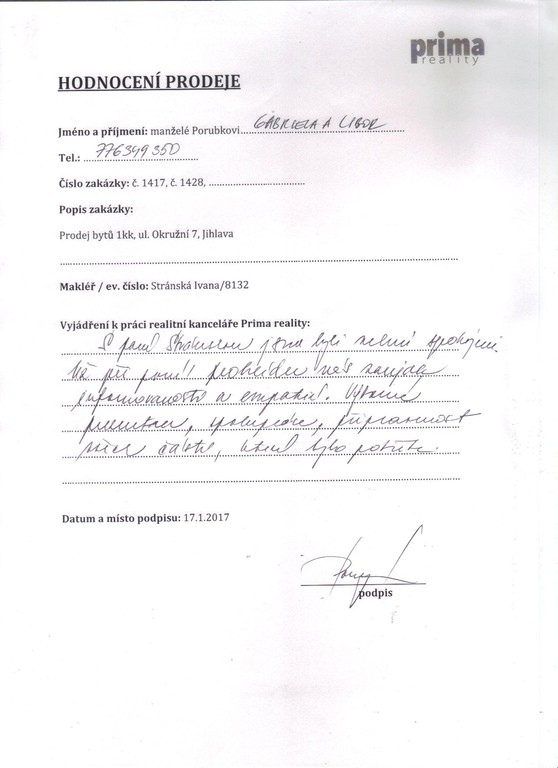 prima
reality
HODNOCENÍ PRODEJE
Jméno a příjmení: manželé Porubkovi GABRIELA A LIBOR
Tel.: 776349350
Číslo zakázky: č. 1417, č. 1428,
Popis zakázky:
Prodej bytů 1kk, ul. Okružní 7, Jihlava
Makléř / ev. číslo: Stránská Ivana/8132
Vyjádření k práci realitní kanceláře Prima reality:
S paní Stránskou jsme byli velmi spokojeni.
Už při první prohlídce nás zaujala
informovaností a empatií. Výborná
prezentace, spolupráce, připravenost
, bylo potřeba.
Datum a místo podpisu: 17.1.2017
podpis